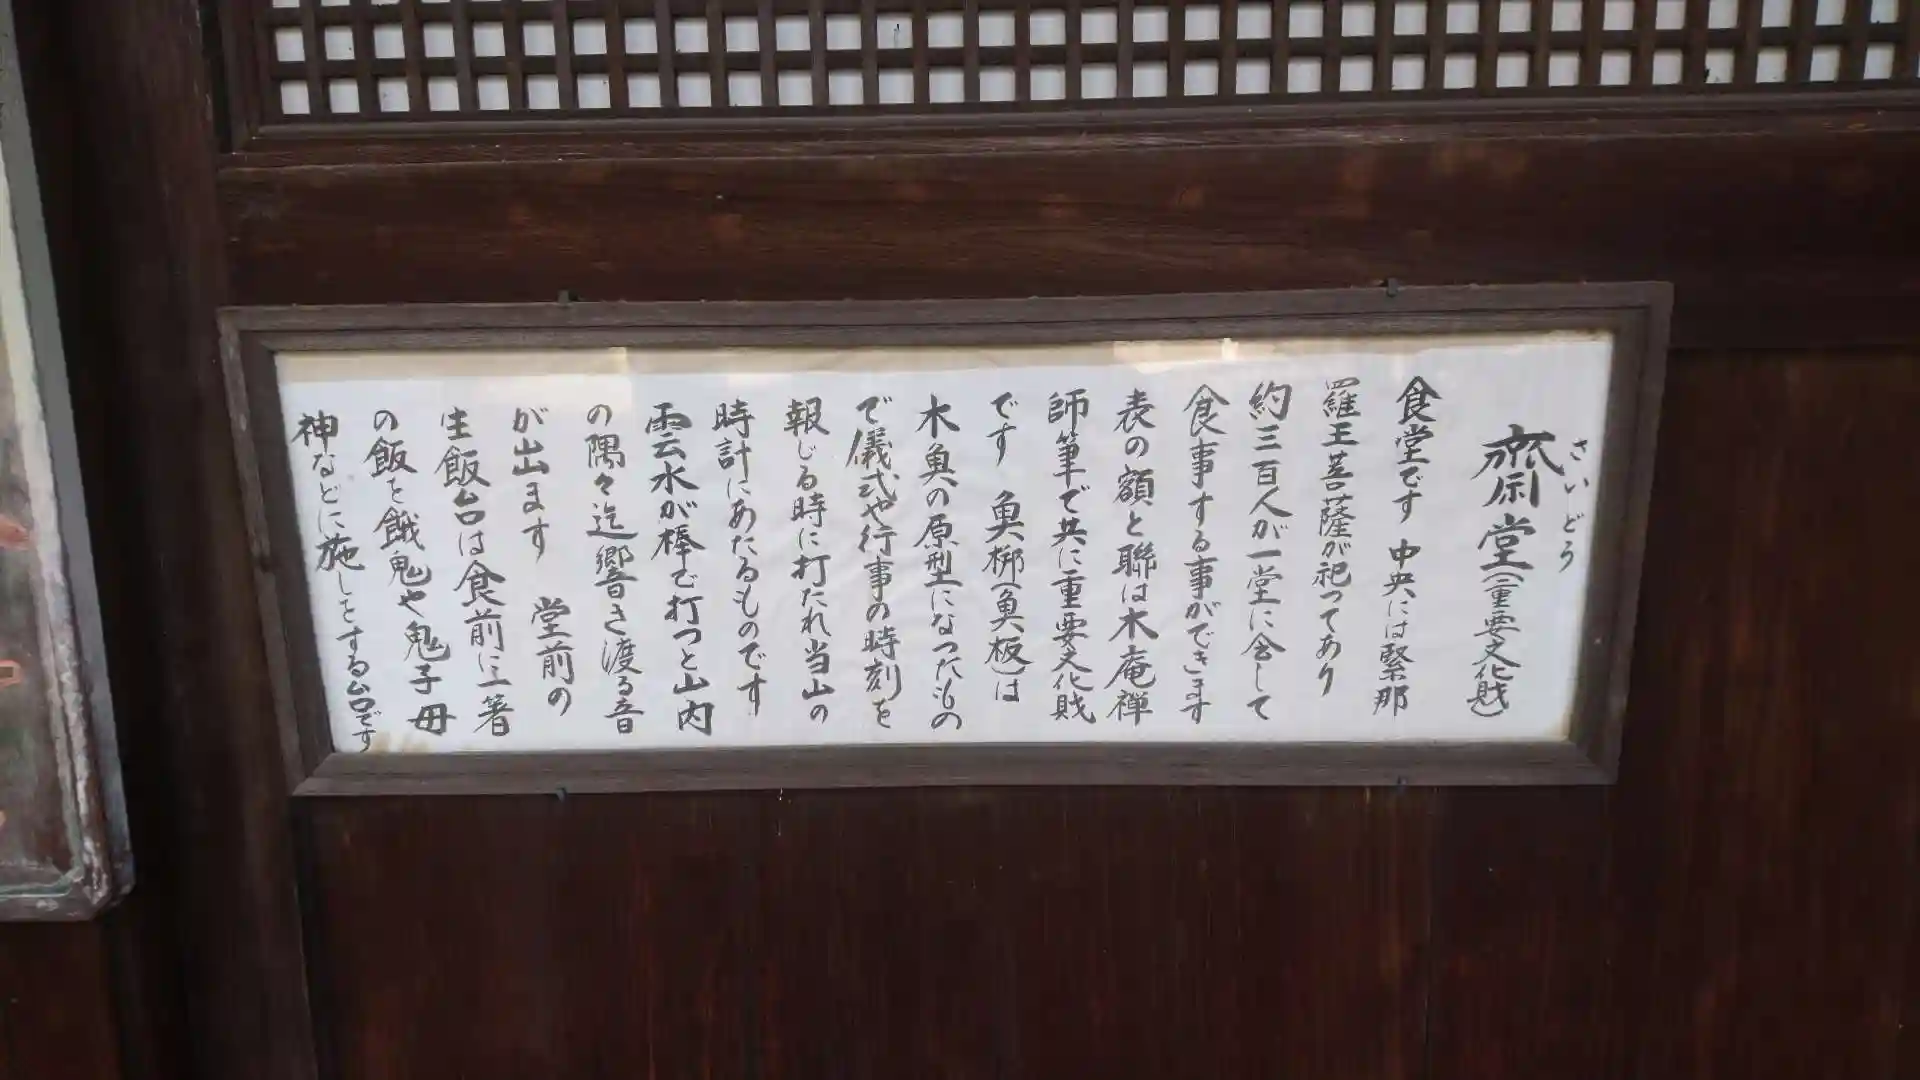 さいどう
齋堂（重要文化財）
食堂です 中央には緊那
羅王菩薩が祀ってあり
約三百人が一堂に会して
食事する事ができます
表の額と聯は木庵禅
師筆で共に重要文化財
です 魚梆（魚板）は
木魚の原型になったもの
で儀式や行事の時刻を
報じる時に打たれ当山の
時計にあたるものです
雲水が棒で打つと山内
の隅々迄響き渡る音
が出ます 堂前の
生飯台は食前に一箸
の飯を餓鬼や鬼子母
神などに施しをする台です